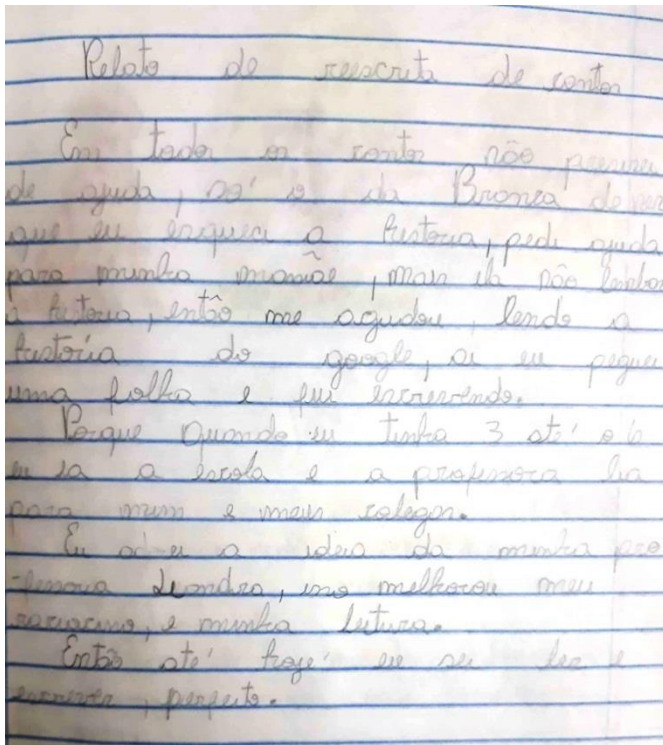 Relato de reescrita de contos
Em todos os contos não precisei
de ajuda, só o da Branca de
que eu esqueci a historia, pedi ajuda
para minha mamãe, mais ela não
a historia, então me agudou, lendo a
história do google, ai eu peguei
uma folha e fui escrevendo.
Porque quando eu tinha 3 até o 6
eu ia a escola e a professora lia
para mim e meus colegas.
Eu adorei a ideia da minha pro
-fessora Leandra, isso melhorou meu
raciocino, e minha leitura.
Então até hoje eu sei ler e
escrever, perfeito.